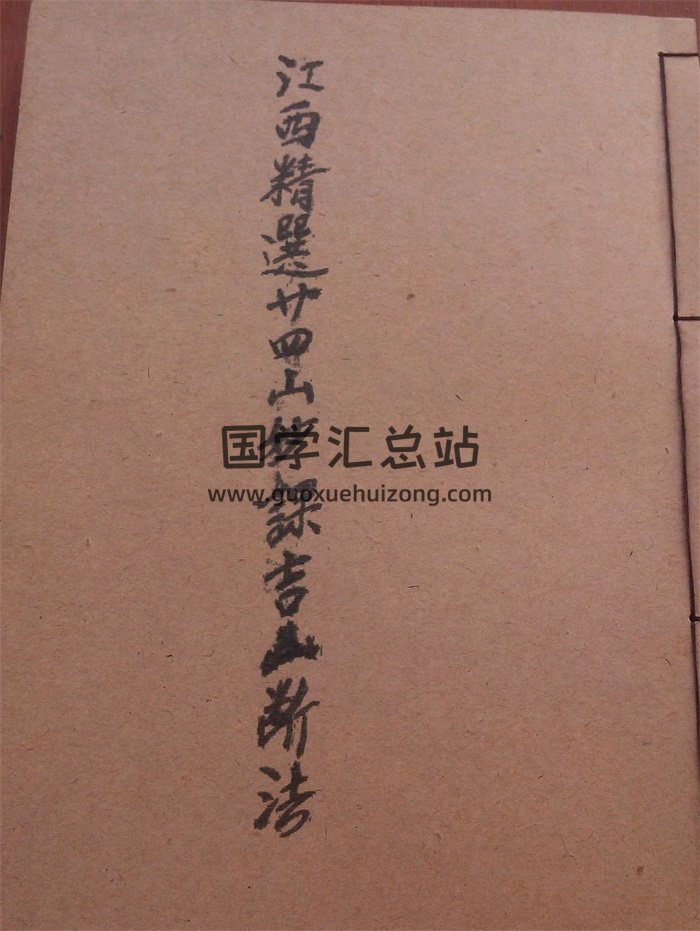 江西精選廿四山課吉凶断法
国学汇总站
www.guoxuehuizong.com